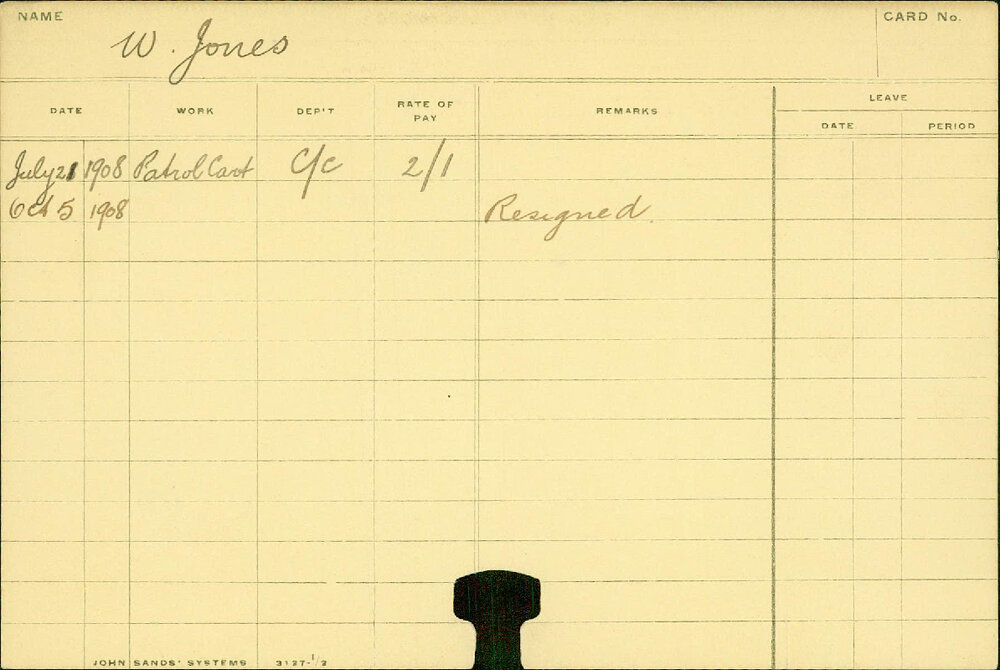 NAME CARD No.
W. Jones
DATE WORK DEP'T RATE OF PAY REMARKS LEAVE
DATE PERIOD
July 21 1908 Patrol Cart C/c 2/1
Oct 5 1908 Resigned.
JOHN SANDS' SYSTEMS 3127-1/2